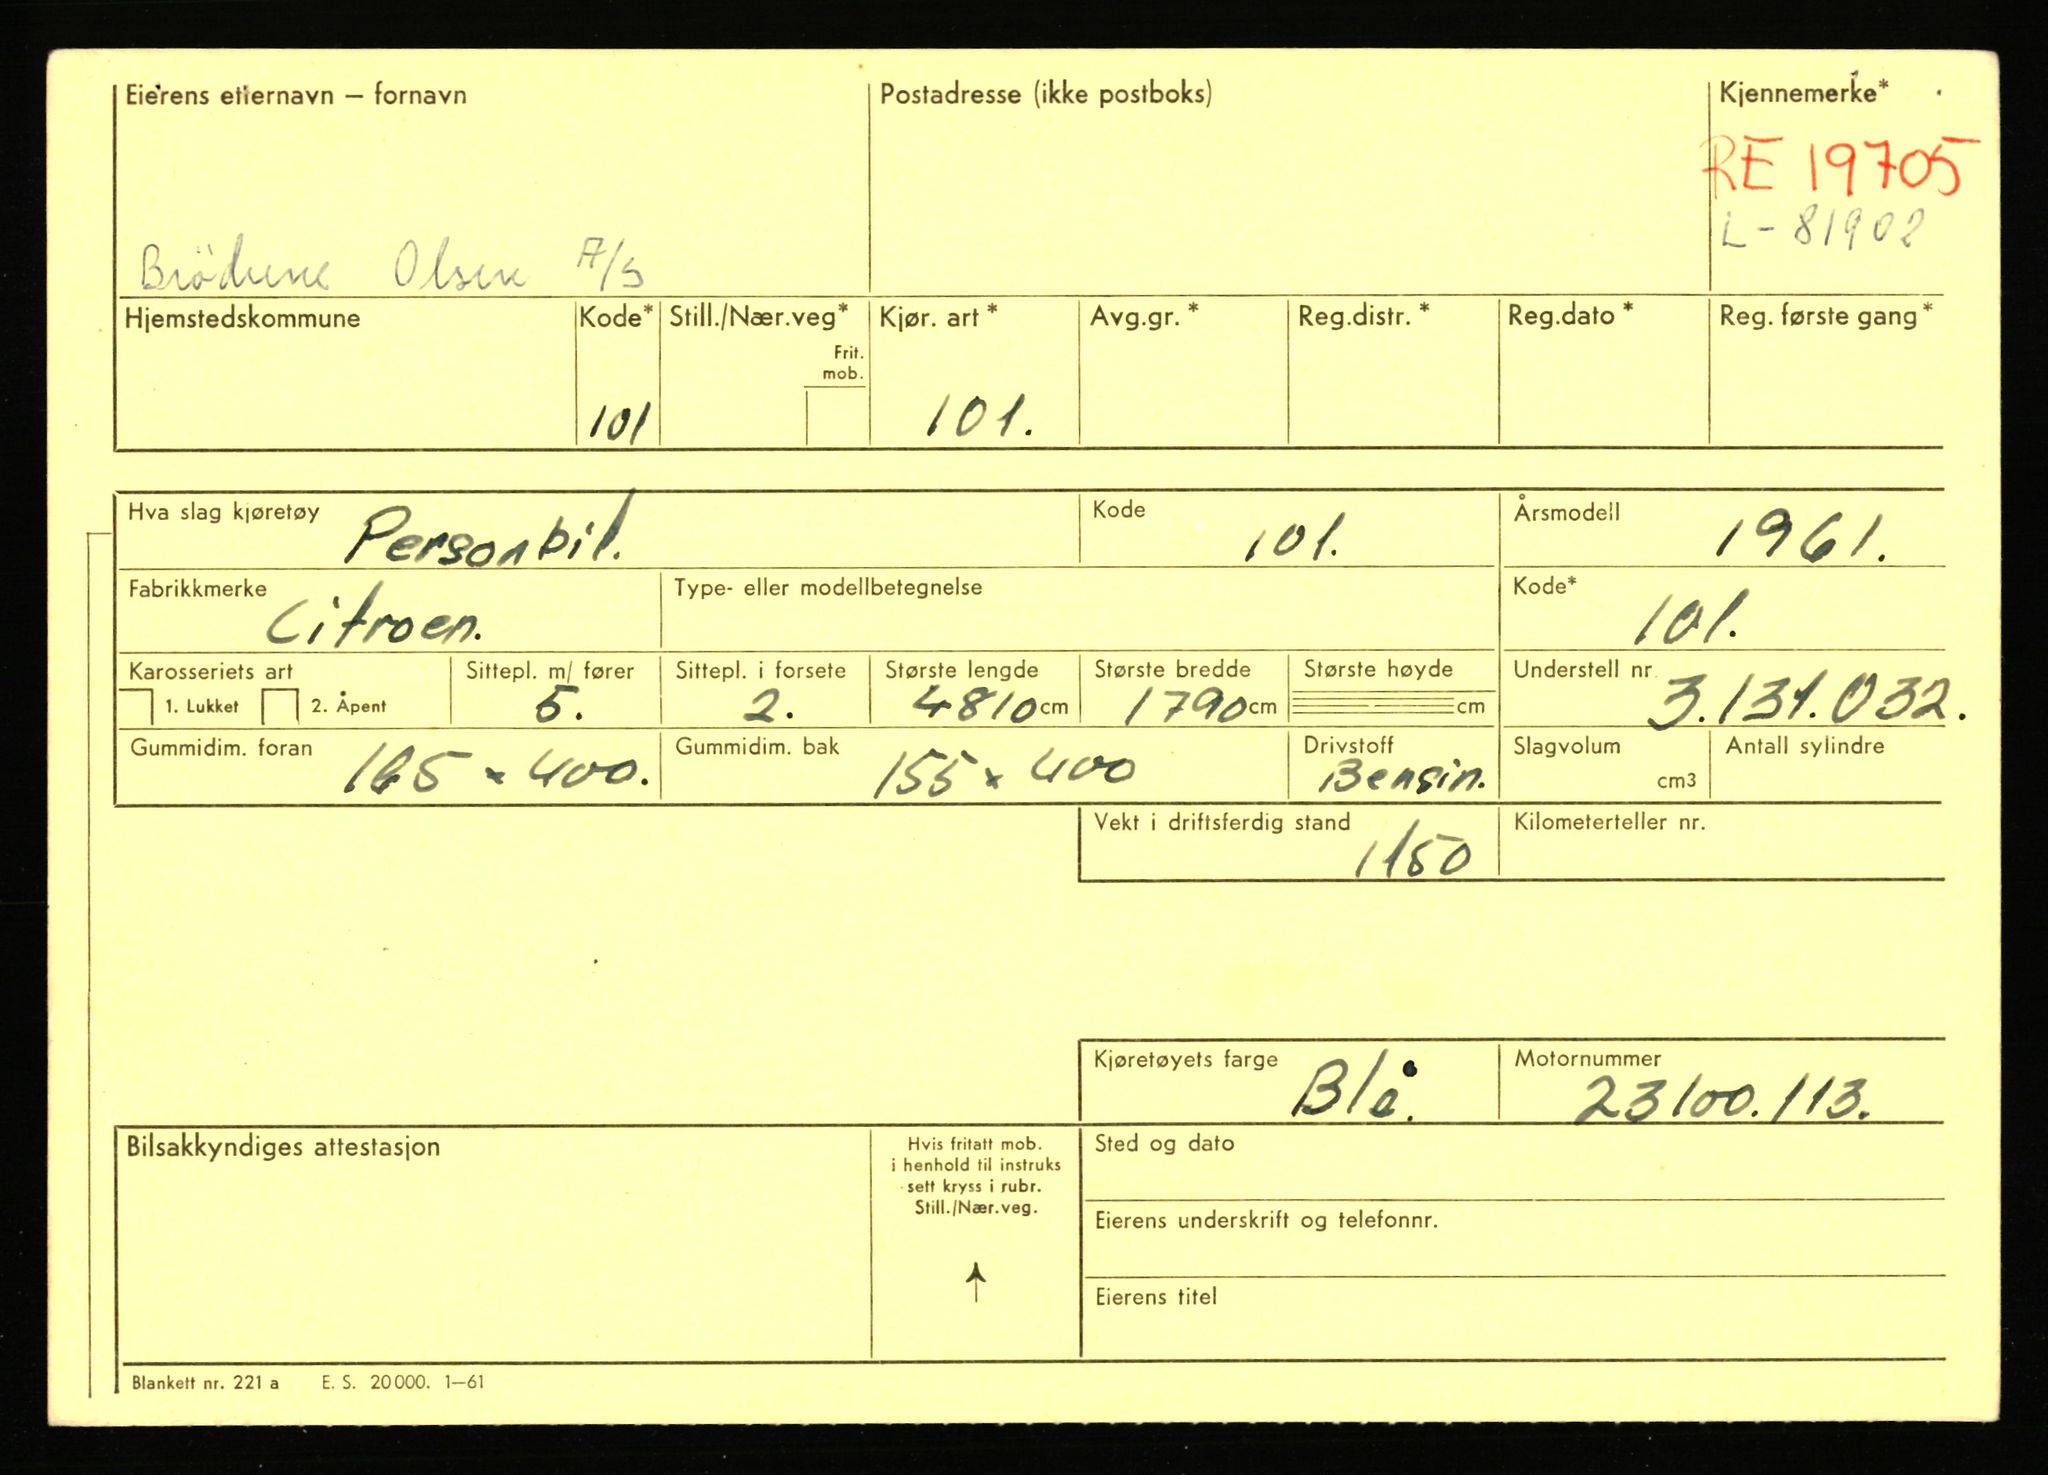 Eierens etternavn – fornavn
Postadresse (ikke postboks)
Kjennemerke*
RE 19705
L-81902
Brödrene Olsen A/S
Hjemstedskommune
Kode*
101
Still./Nær.veg*
Frit.
mob.
Kjør. art*
101.
Avg.gr.*
Reg.distr.*
Reg.dato*
Reg. første gang*
Hva slag kjøretøy
Personbil.
Kode
101.
Årsmodell
1961.
Fabrikkmerke
Citroen.
Type- eller modellbetegnelse
Kode*
101.
Karosseriets art
1. Lukket 2. Åpent
Sittepl. m/ fører
5.
Sittepl. i forsete
2.
Største lengde
4810 cm
Største bredde
1790 cm
Største høyde
cm
Understell nr.
3.131.032.
Gummidim. foran
165 x 400.
Gummidim. bak
155 x 400
Drivstoff
Bensin.
Slagvolum
cm3
Antall sylindre
Vekt i driftsferdig stand
1150
Kilometerteller nr.
Kjøretøyets farge
Blå.
Motornummer
23100.113.
Bilsakkyndiges attestasjon
Hvis fritatt mob.
i henhold til instruks
sett kryss i rubr.
Still./Nær.veg.
Sted og dato
Eierens underskrift og telefonnr.
Eierens titel
Blankett nr. 221 a E. S. 20000. 1–61